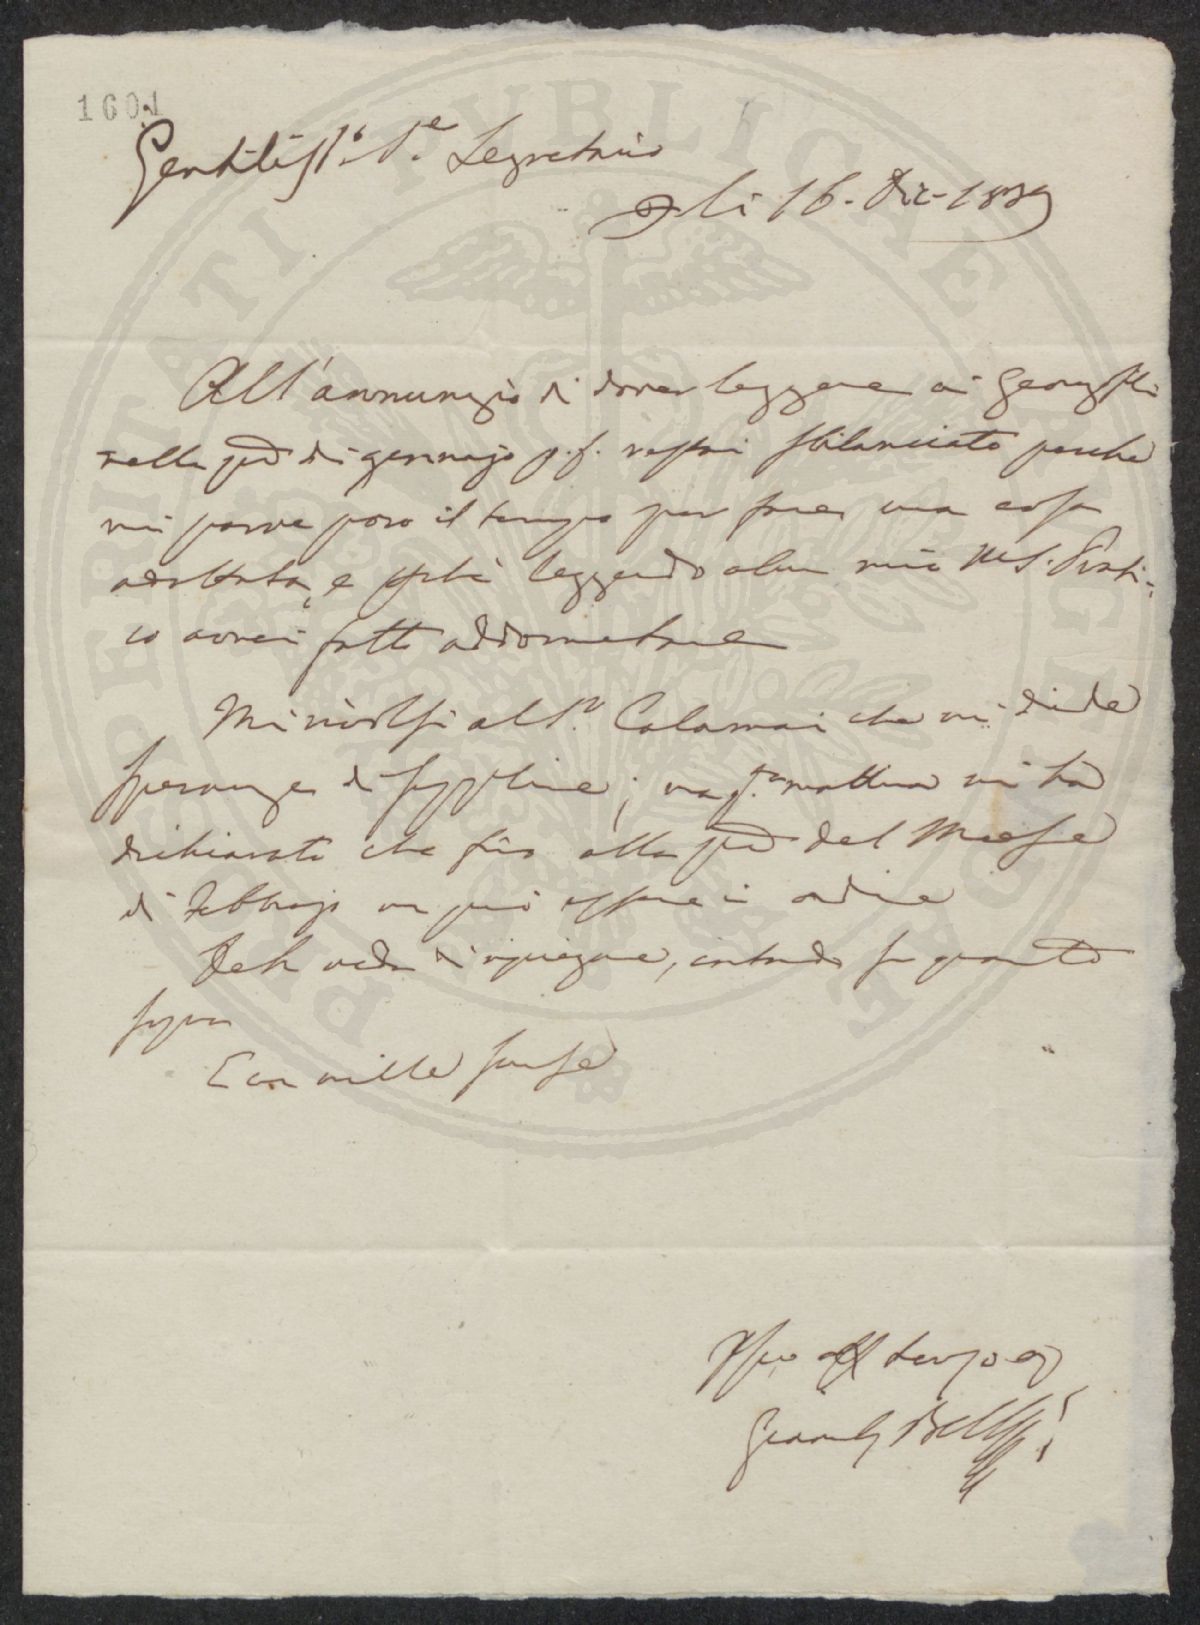 1601
Gentiliss.o S.e Segretario
li 16. Dic- 1839
All'annunzio di dover leggere ai Georgofili
nella pa di gennajo p.f. restai sbilanciato perche
mi parve poco il tempo per fare una cosa
adattata, e leggendo alcun mio MS. Prati-
co avrei fatto addormentare
Mi rivolsi al S.r Calamai che mi diede
speranza di supplire; ma q.ta mattina mi ha
dichiarato che fino alla pa del Mese
di Febbrajo non può essere in ordine
Deh veda di ripiegare, intendo se quanto
sopra
Con mille scuse
Suo aff
Bell
PROSPERITATI PVBLICAE AVGENDAE